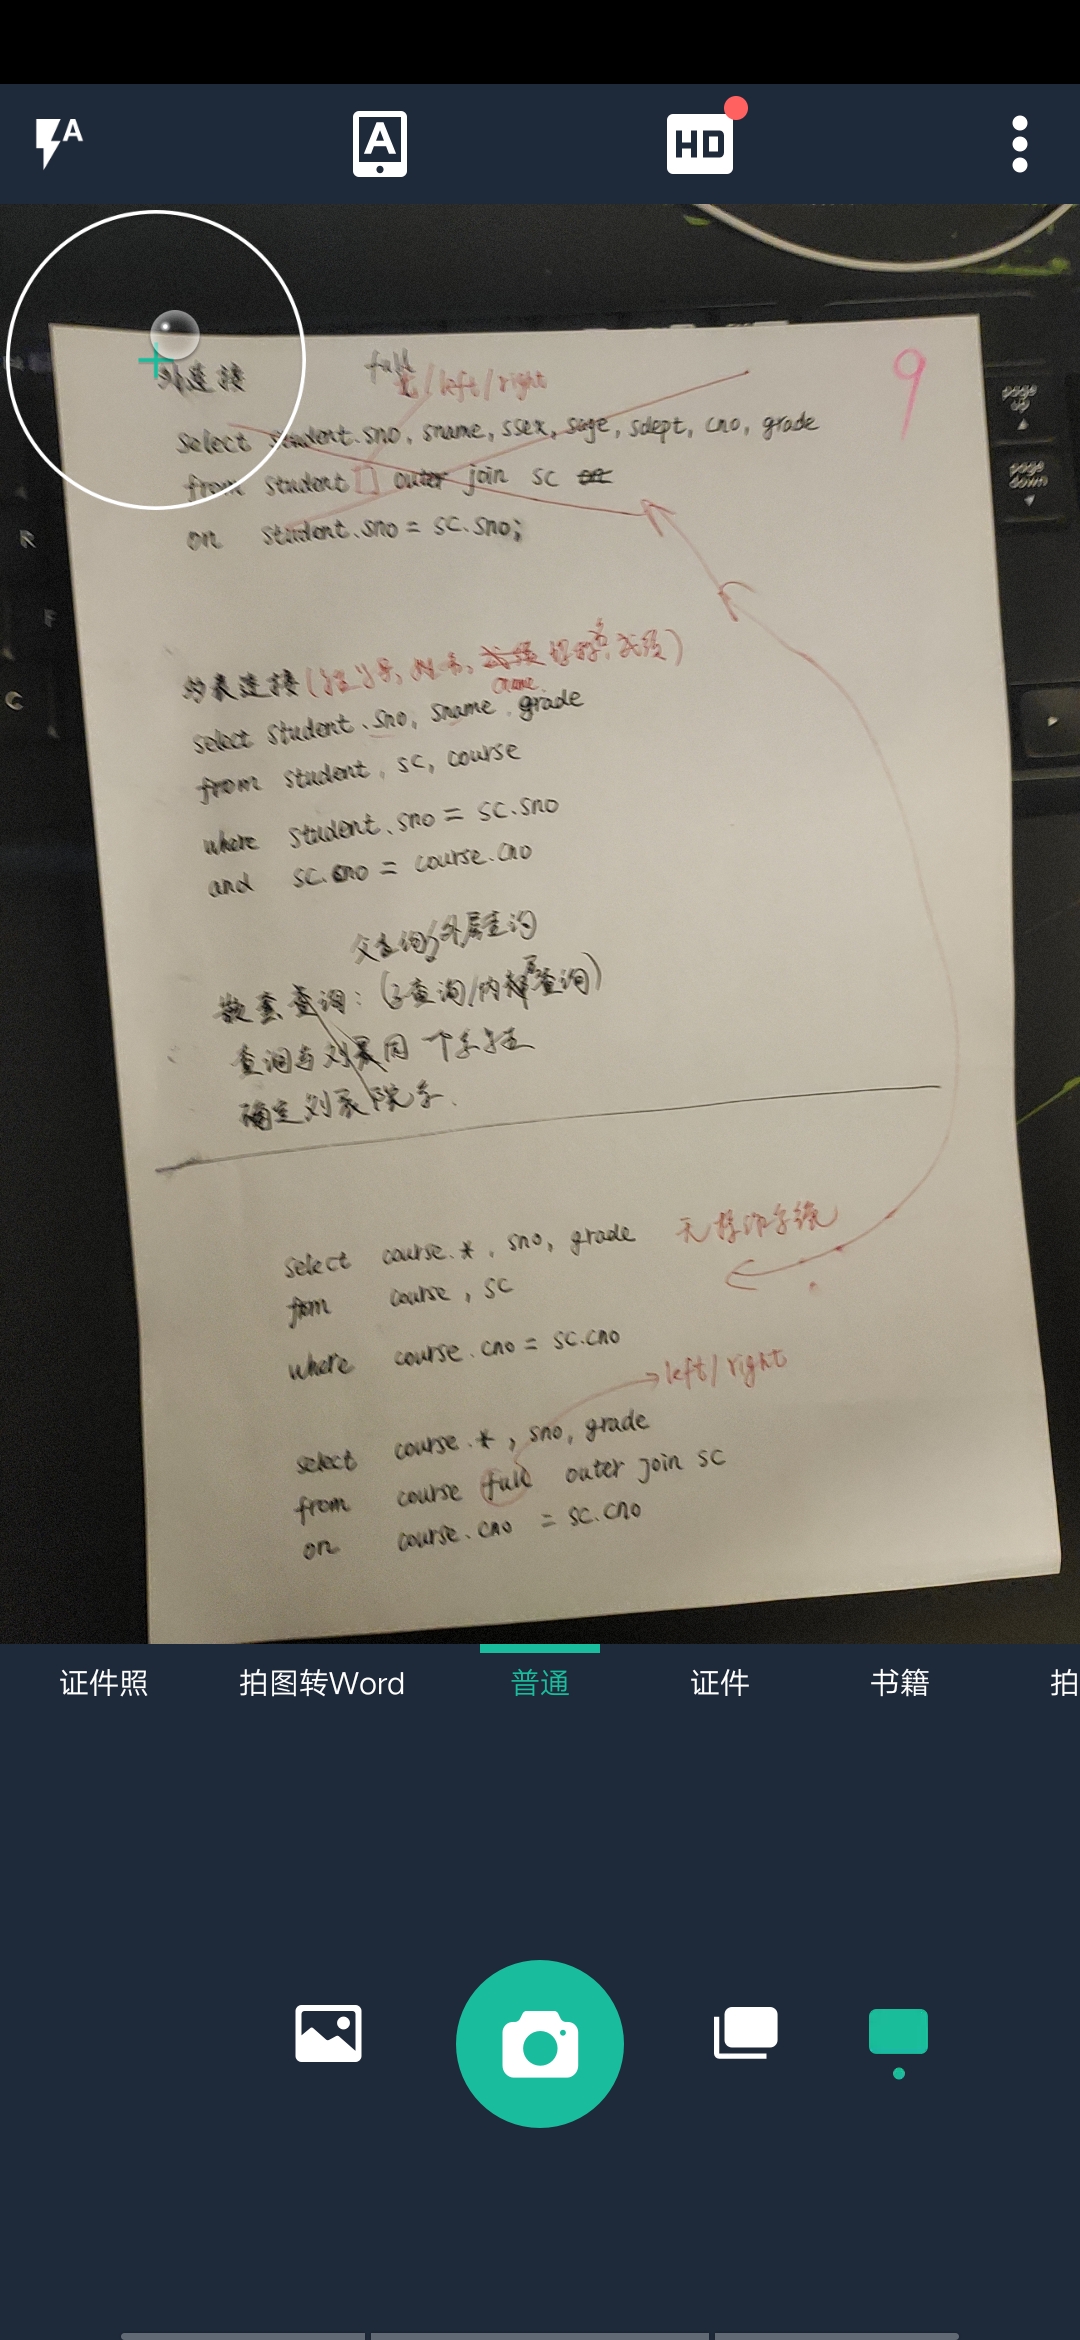 A
A
HD
外连接 full
/left/right
9
select student.sno, sname, ssex, sage, sdept, cno, grade
from student [] outer join sc
on student.sno = sc.sno;
page up
page down
R
F
C
多表连接(学生学号, 姓名, 课程名, 成绩)
cname.
select student.sno, sname, grade
from student, sc, course
where student.sno = sc.sno
and sc.cno = course.cno
父查询/外层查询
嵌套查询: (子查询/内层查询)
查询与刘晨同一个系学生
确定刘晨院系.
select course.*, sno, grade
from course, sc
where course.cno = sc.cno
left/right
select course.*, sno, grade
from course full outer join sc
on course.cno = sc.cno
证件照 拍图转Word 普通 证件 书籍 拍